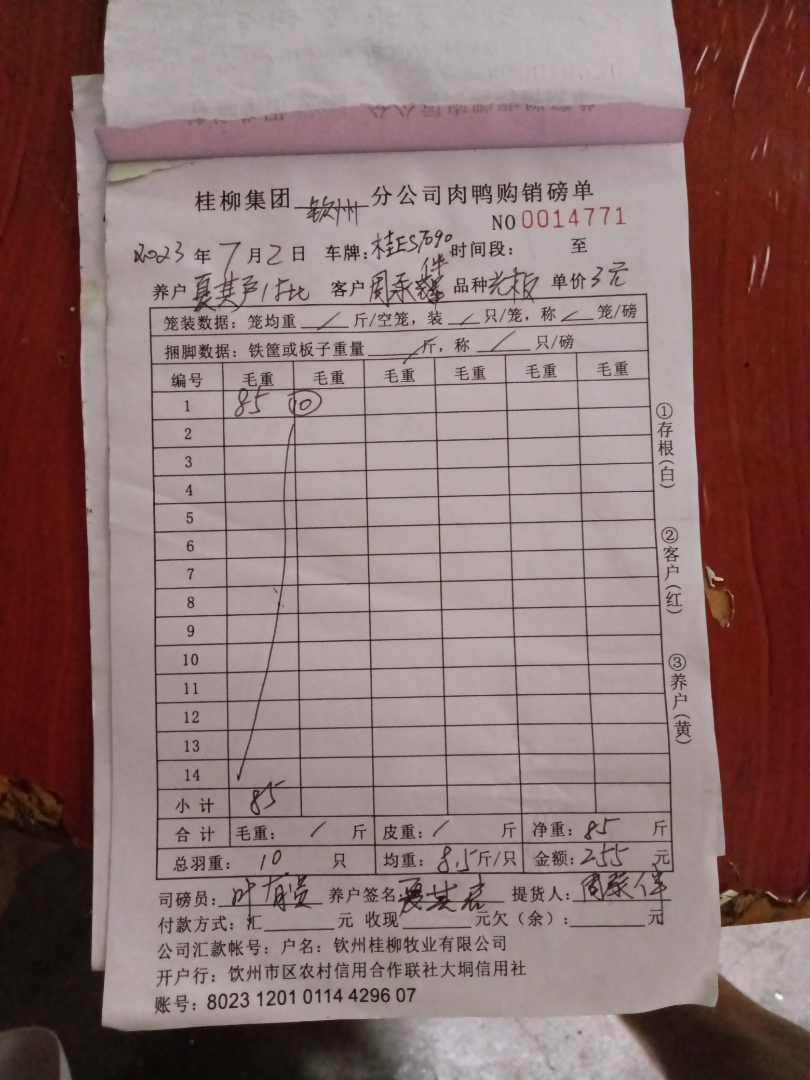 桂柳集团 钦州 分公司肉鸭购销磅单
NO 0014771
2023 年 7 月 2 日 车牌: 桂ES7090 时间段: 至
养户 夏其芦 客户 周承 品种 光板 单价 3元
笼装数据: 笼均重 / 斤/空笼, 装 / 只/笼, 称 / 笼/磅
捆脚数据: 铁筐或板子重量 / 斤, 称 / 只/磅
编号 毛重 毛重 毛重 毛重 毛重 毛重
1 85 10
2
3
4
5
6
7
8
9
10
11
12
13
14
小计 85
合计 毛重: / 斤 皮重: / 斤 净重: 85 斤
总羽重: 10 只 均重: 8.5 斤/只 金额: 255 元
司磅员: 叶 养户签名 夏其 提货人: 周承伴
付款方式: 汇 元 收现 元欠(余): 元
公司汇款帐号: 户名: 钦州桂柳牧业有限公司
开户行: 钦州市区农村信用合作联社大垌信用社
账号: 8023 1201 0114 4296 07
①存根(白)
②客户(红)
③养户(黄)